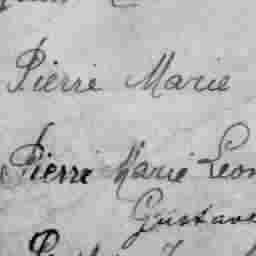 Pierre Marie
Pierre Marie Leon
Gustave